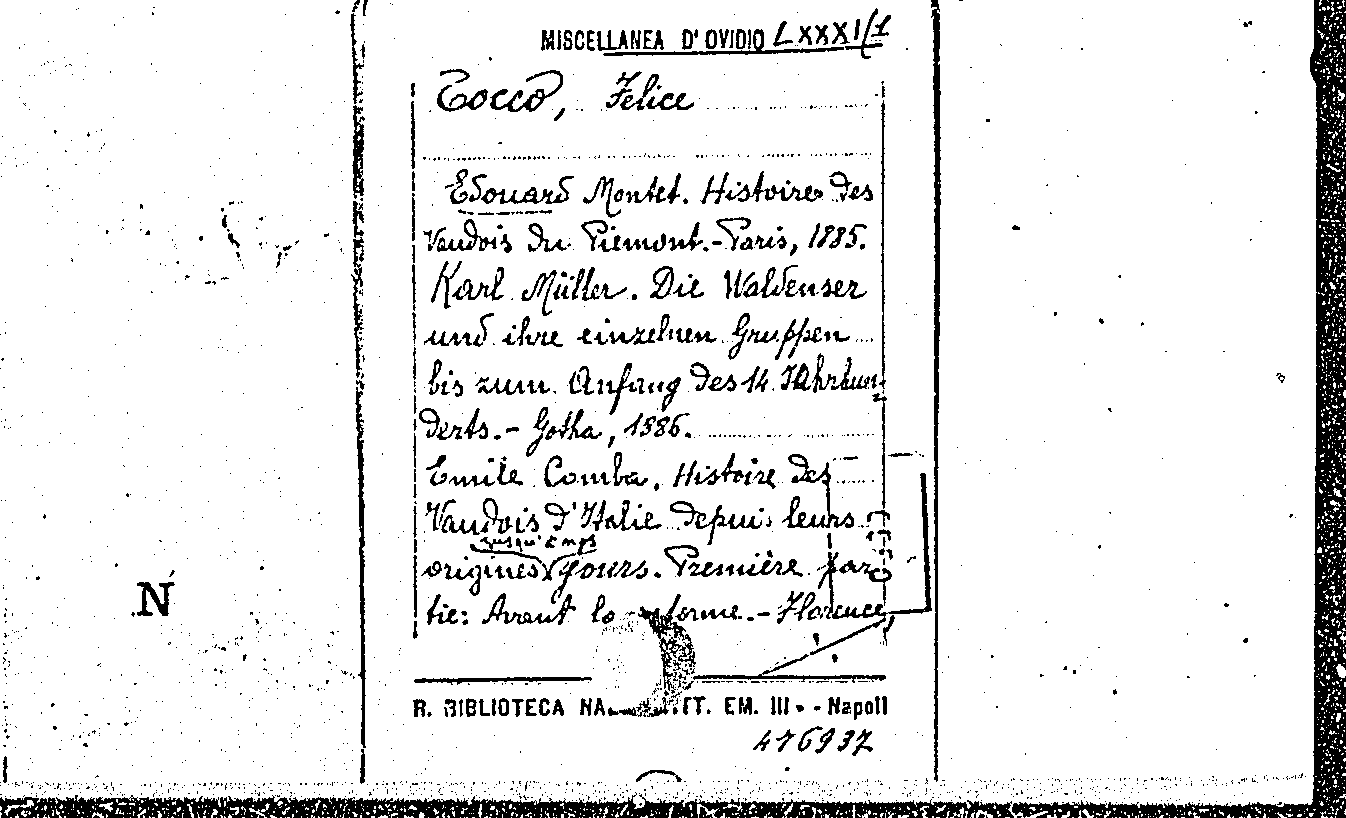 MISCELLANEA D'OVIDIO LXXXI/1
Tocco, Felice
Edouard Montet. Histoire des
Vaudois du Piemont.- Paris, 1885.
Karl Müller. Die Waldenser
und ihre einzelnen Gruppen
bis zum Anfang des 14. JAhrhun=
derts.- Gotha, 1886.
Emile Comba, Histoire des
Vaudois d'Italie depuis leurs
jusqu'à nos
origines yours. Première par
tie: Avant la reforme.- Florence,
R. BIBLIOTECA NA TT. EM. III - Napoli
476937
N